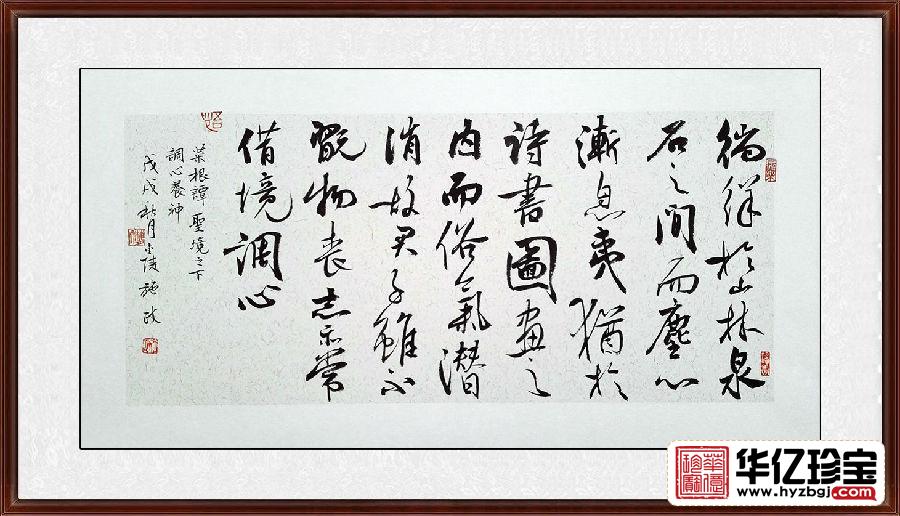 徜徉於山林泉
石之間而塵心
漸息夷猶於
詩書圖畫之
内而俗氣潛
消故君子雖不
翫物喪志亦常
借境調心
菜根譚 聖境之下
調心養神
戊戌秋月金陵施政
华亿珍宝
www.hyzbgj.com